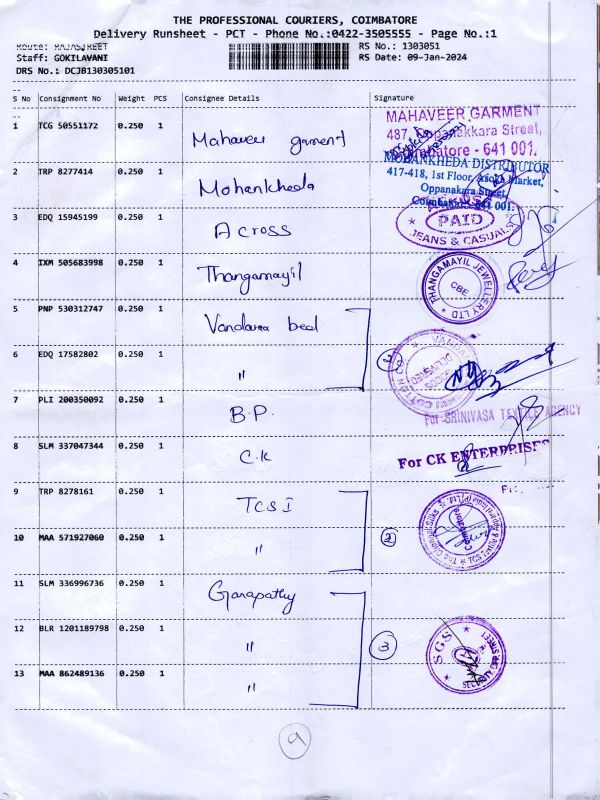 THE PROFESSIONAL COURIERS, COIMBATORE
Delivery Runsheet - PCT - Phone No.:0422-3505555 - Page No.:1
Route: RAJASTREET
RS No.: 1303051
Staff: GOKILAVANI
RS Date: 09-Jan-2024
DRS No.: DCJB130305101
S No Consignment No Weight PCS Consignee Details Signature
1 TCG 50551172 0.250 1 Mahaveer garment
MAHAVEER GARMENT
487, Oppanakkara Street,
Coimbatore - 641 001.
2 TRP 8277414 0.250 1 Mohankheda
MOHANKHEDA DISTRIBUTOR
417-418, 1st Floor, Asoka Market,
Oppanakara Street,
Coimbatore - 641 001.
3 EDQ 15945199 0.250 1 Across
PAID
JEANS & CASUAL
4 IXM 505683998 0.250 1 Thangamayil
THANGAMAYIL JEWELLERY LTD
CBE
5 PNP 530312747 0.250 1 Vandana bed
6 EDQ 17582802 0.250 1 "
7 PLI 200350092 0.250 1 B.P.
For SRINIVASA TEXTILE AGENCY
8 SLM 337047344 0.250 1 C.K
For CK ENTERPRISES
9 TRP 8278161 0.250 1 TCS I
10 MAA 571927060 0.250 1 "
2
The Chennai Silks
11 SLM 336996736 0.250 1 Ganapathy
12 BLR 1201189798 0.250 1 "
3
SGS
13 MAA 862489136 0.250 1 "
9